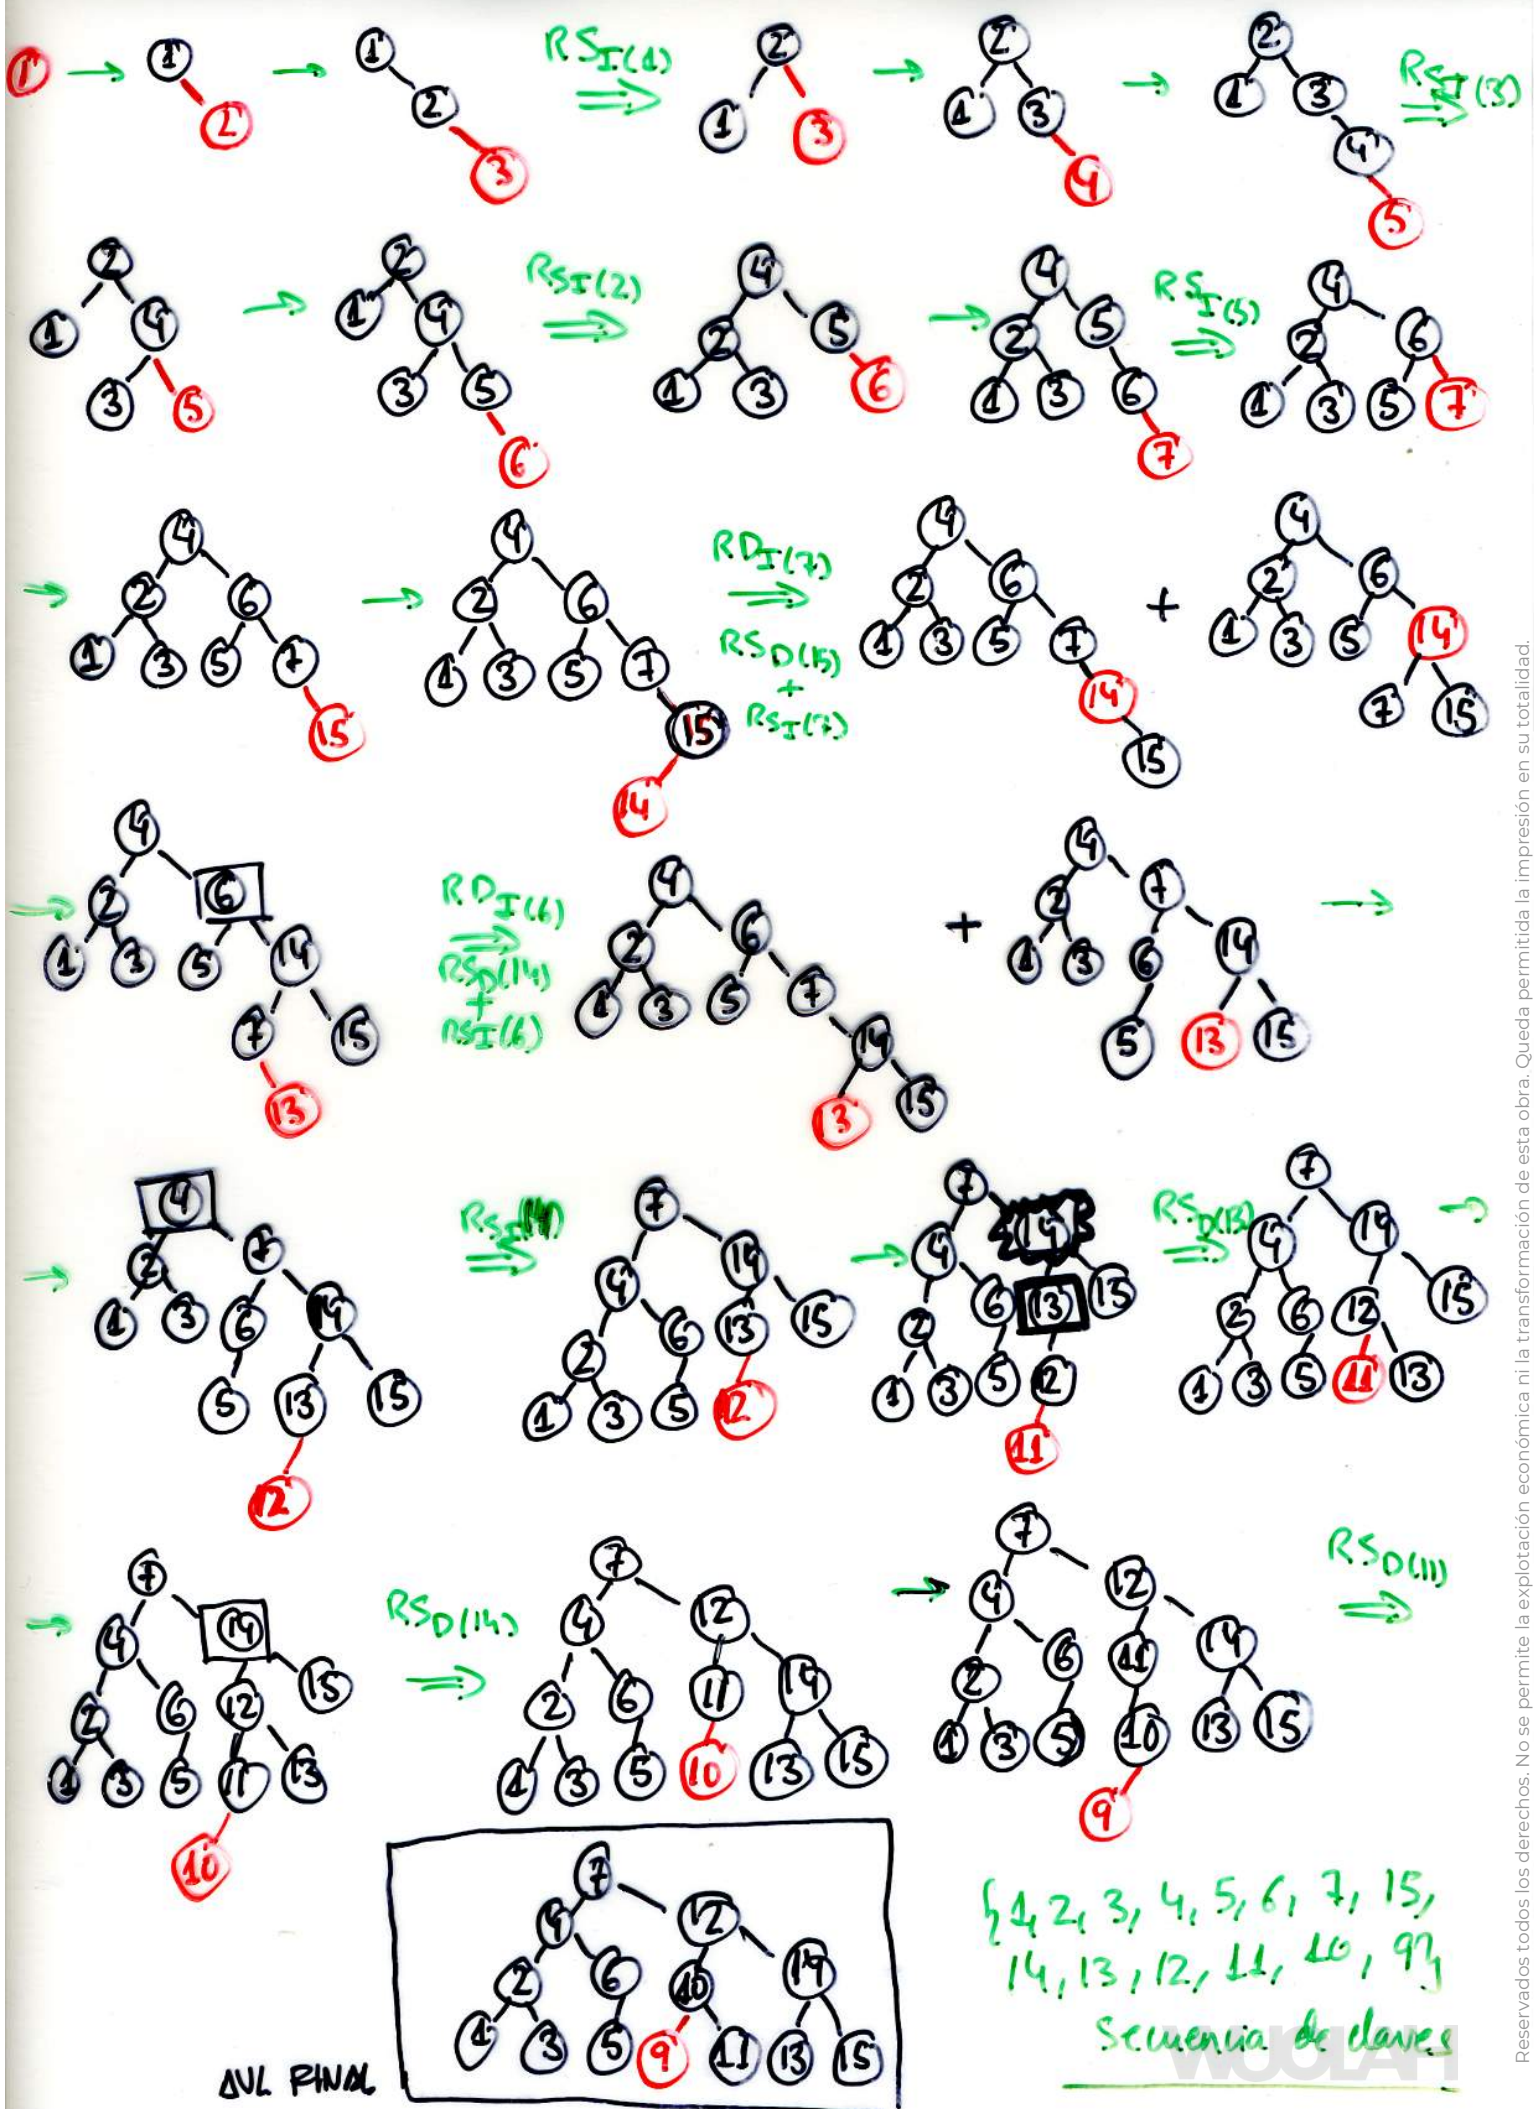 1
1
2
1
2
3
RSI(1)
2
1 3
2
1 3
4
2
1 3
4
5
RSI(3)
2
1 4
3 5
2
1 4
3 5
6
RSI(2)
4
2 5
1 3 6
4
2 5
1 3 6
7
RSI(5)
4
2 6
1 3 5 7
4
2 6
1 3 5 7
15
4
2 6
1 3 5 7
15
14
RDI(7)
RSD(15)
+
RSI(7)
4
2 6
1 3 5 7
14
15
+
4
2 6
1 3 5 14
7 15
4
2 6
1 3 5 14
7 15
13
RDI(6)
RSD(14)
+
RSI(6)
4
2 6
1 3 5 7
14
13 15
+
4
2 7
1 3 6 14
5 13 15
4
2 7
1 3 6 14
5 13 15
12
RSI
7
4 14
2 6 13 15
1 3 5 12
7
4 14
2 6 13 15
1 3 5 12
11
RSD(13)
7
4 14
2 6 12 15
1 3 5 11 13
7
4 14
2 6 12 15
1 3 5 11 13
10
RSD(14)
7
4 12
2 6 11 14
1 3 5 10 13 15
7
4 12
2 6 11 14
1 3 5 10 13 15
9
RSD(11)
7
4 12
2 6 10 14
1 3 5 9 11 13 15
AVL FINAL
{1, 2, 3, 4, 5, 6, 7, 15,
14, 13, 12, 11, 10, 9}
Secuencia de claves
WUOLAH
Reservados todos los derechos. No se permite la explotación económica ni la transformación de esta obra. Queda permitida la impresión en su totalidad.